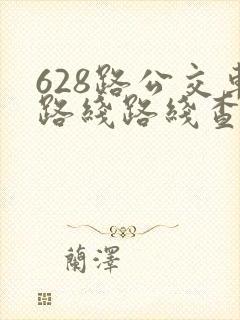 628路公交車
路綫路綫查
蘭澤